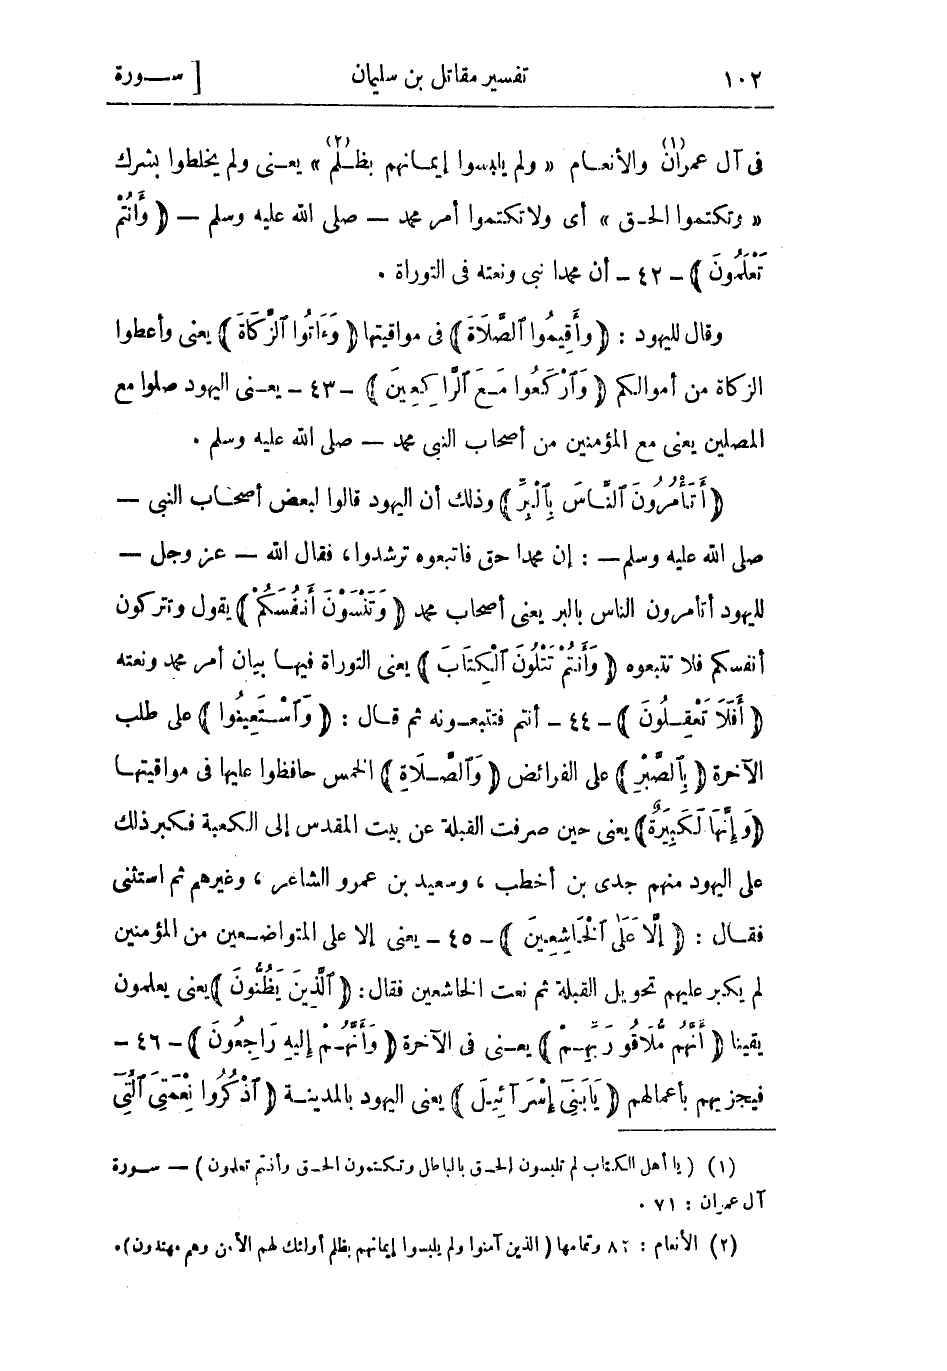 ١٠٢ تفسير مقاتل بن سليمان [ ســورة
فى آل عمران(١) والأنعـام « ولم يلبسوا إيمـانهم بظـلم(٢) » يعـنى ولم يخلطوا بشرك
« وتكتموا الحـق » أى ولا تكتموا أمر محمد — صلى الله عليه وسلم — ﴿ وَأَنتُمْ
تَعْلَمُونَ ﴾ - ٤٢ - أن محمدا نبى ونعته فى التوراة .
وقال لليهود : ﴿ وأَقِيمُوا ٱلصَّلَاةَ ﴾ فى مواقيتها ﴿ وَءَاتُوا ٱلزَّكَاةَ ﴾ يعنى وأعطوا
الزكاة من أموالكم ﴿ وَٱرْكَعُوا مَـعَ ٱلرَّاكِعِينَ ﴾ - ٤٣ - يعـنى اليهود صلوا مع
المصلين يعنى مع المؤمنين من أصحاب النبى محمد — صلى الله عليه وسلم .
﴿ أَتَأْمُرُونَ ٱلنَّـاسَ بِٱلْبِرِّ ﴾ وذلك أن اليهود قالوا لبعض أصحـاب النبى —
صلى الله عليه وسلم — : إن محمدا حق فاتبعوه ترشدوا ، فقال الله — عز وجل —
لليهود أتأمرون الناس بالبر يعنى أصحاب محمد ﴿ وَتَنْسَوْنَ أَنفُسَكُمْ ﴾ يقول وتتركون
أنفسكم فلا تتبعوه ﴿ وَأَنتُمْ تَتْلُونَ ٱلْكِتَابَ ﴾ يعنى التوراة فيهـا بيان أمر محمد ونعته
﴿ أَفَلَا تَعْقِـلُونَ ﴾ - ٤٤ - أنتم فتتبعـونه ثم قـال : ﴿ وَٱسْـتَعِينُوا ﴾ على طلب
الآخرة ﴿ بِٱلصَّبْرِ ﴾ على الفرائض ﴿ وَٱلصَّـلَاةِ ﴾ الخمس حافظوا عليها فى مواقيتهـا
﴿ وَإِنَّهَا لَكَبِيرَةٌ ﴾ يعنى حين صرفت القبلة عن بيت المقدس إلى الكعبة فـكبر ذلك
على اليهود منهم جدى بن أخطب ، وسعيد بن عمرو الشاعر ، وغيرهم ثم استثنى
فقـال : ﴿ إِلَّا عَلَى ٱلْخَاشِعِينَ ﴾ - ٤٥ - يعنى إلا على المتواضـعين من المؤمنين
لم يكبر عليهم تحويل القبلة ثم نعت الخاشعين فقال : ﴿ ٱلَّذِينَ يَظُنُّونَ ﴾ يعنى يعلمون
يقينا ﴿ أَنَّهُم مُّلَاقُو رَبِّهِـمْ ﴾ يعـنى فى الآخرة ﴿ وَأَنَّهُـمْ إِلَيهِ رَاجِعُونَ ﴾ - ٤٦ -
فيجزيهم بأعمالهم ﴿ يَابَنِىٓ إِسْرَآئِيلَ ﴾ يعنى اليهود بالمدينـة ﴿ ٱذْكُرُوا نِعْمَتِىَ ٱلَّتِىٓ
(١) ( يا أهل الكتاب لم تلبسون الحـق بالباطل وتـكتمون الحـق وأنتم تعلمون ) — سـورة
آل عمران : ٧١ .
(٢) الأنعام : ٨٢ وتمامها ( الذين آمنوا ولم يلبسوا إيمانهم بظلم أولئك لهم الأمن وهم مهتدون ) .